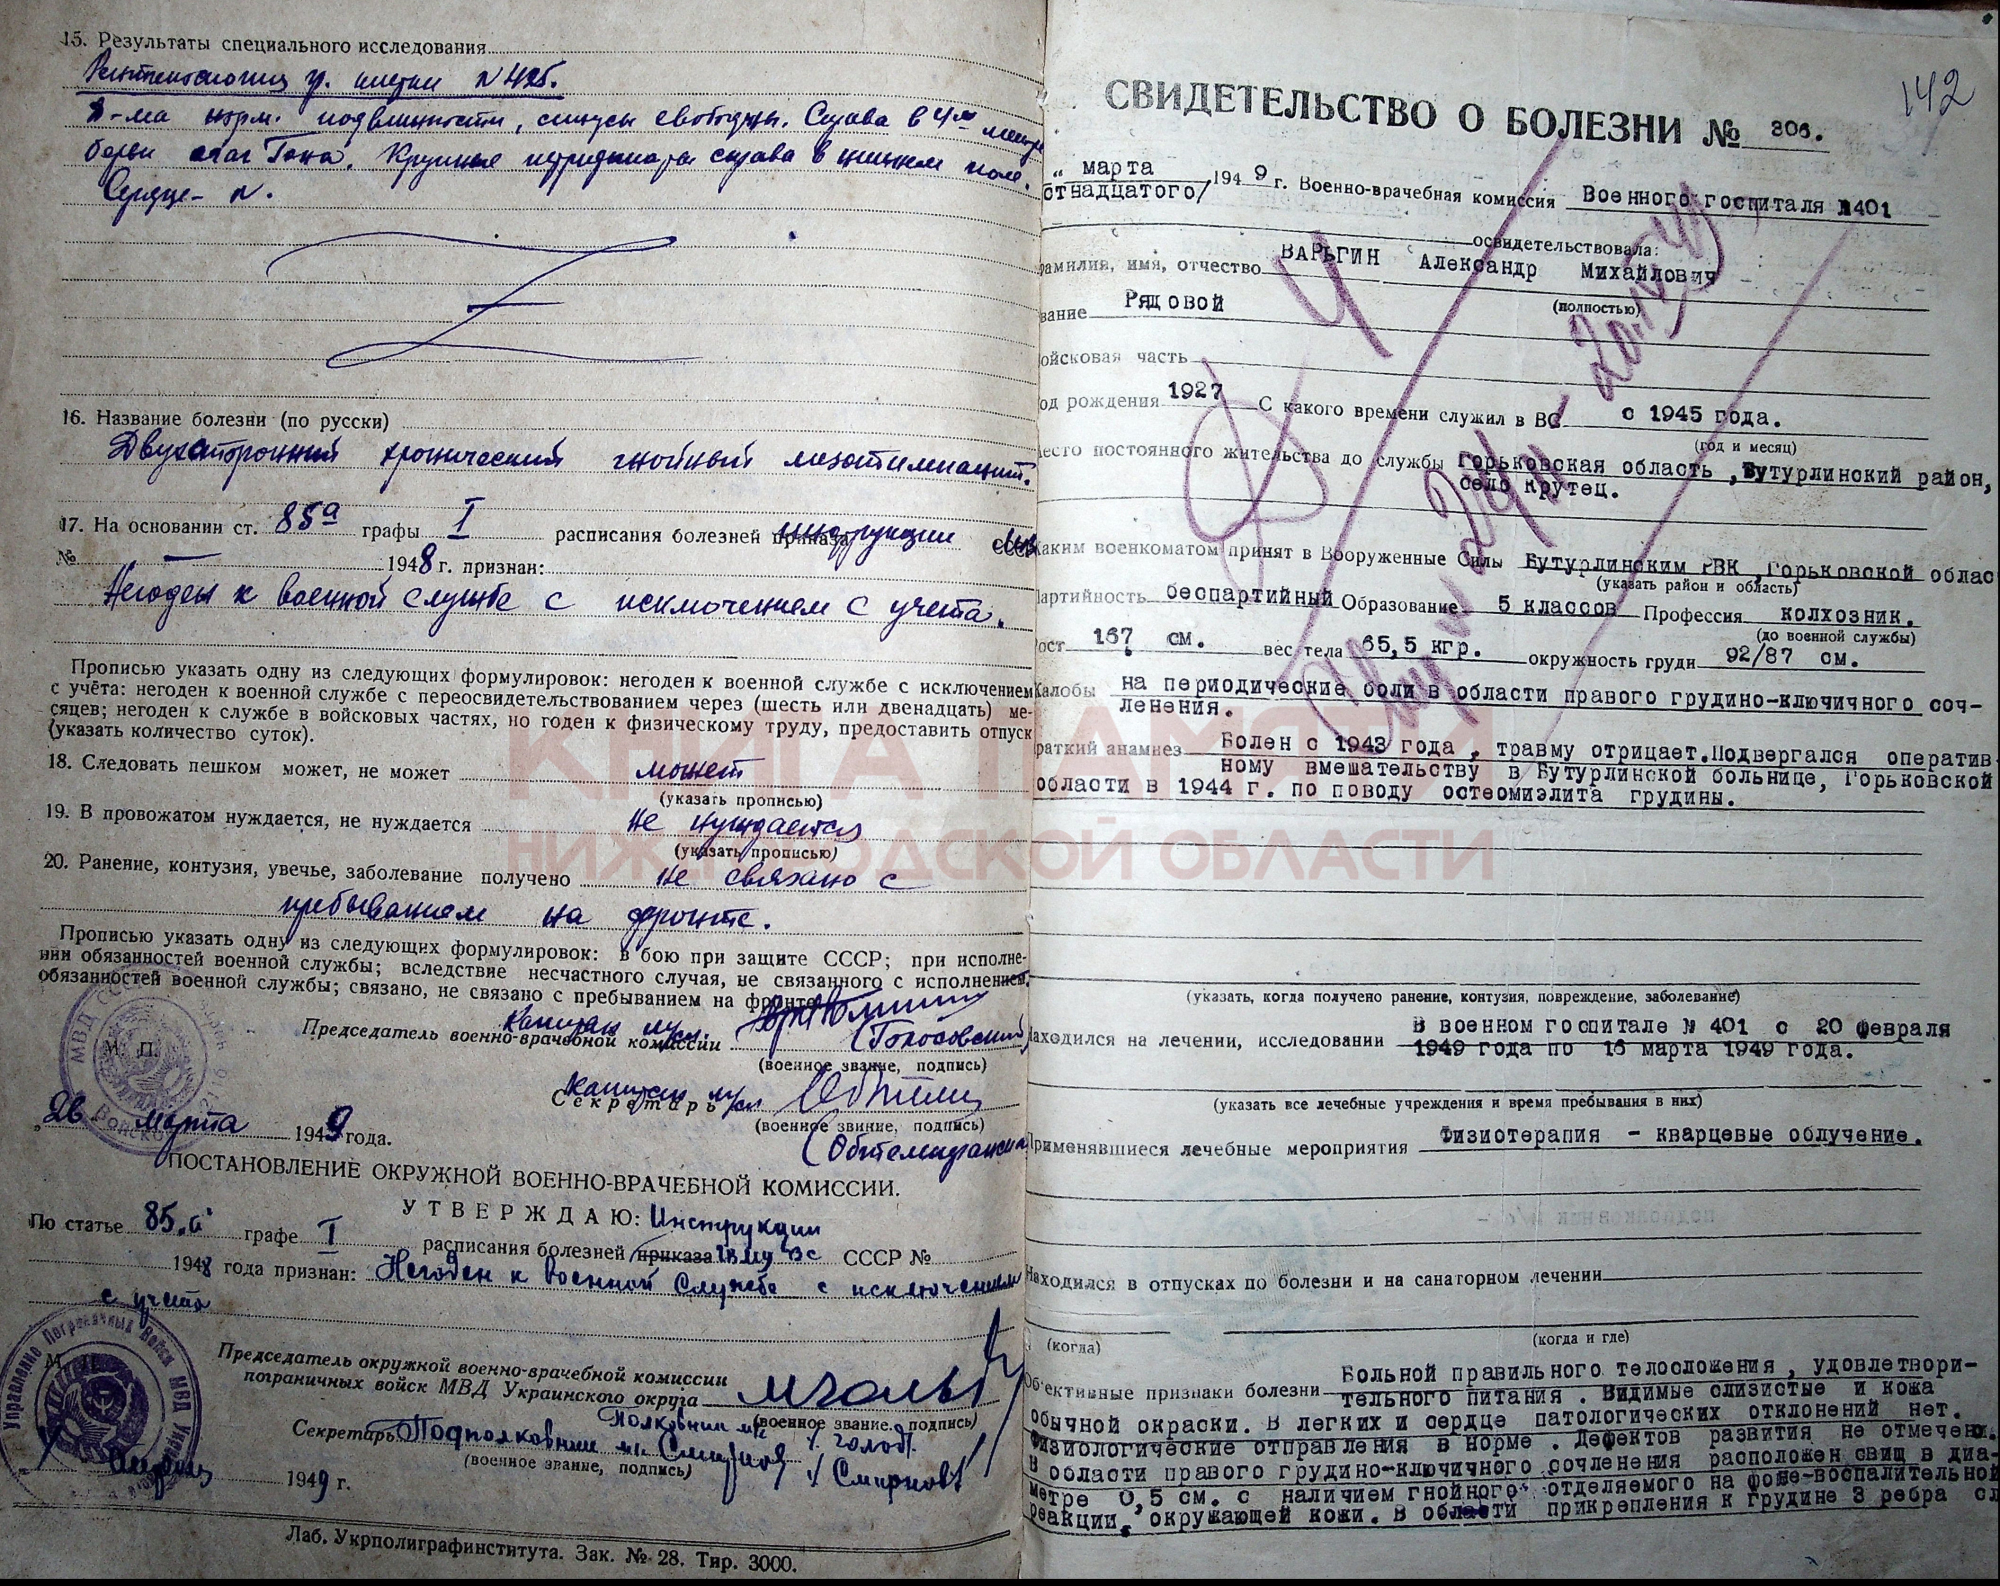 15. Результаты специального исследования
гр. клетки N 425.
Д-ма норм. подвижности, синусы свободны. Справа в 4м
очаг Гона. Крупные справа в нижнем поле.
Сердце - N.
16. Название болезни (по русски)
Двухсторонний хронический гнойный мезотимпанит.
17. На основании ст. 85а графы I расписания болезней приказа инструкции СССР
№ — 1948 г. признан:
Негоден к военной службе с исключением с учета.
Прописью указать одну из следующих формулировок: негоден к военной службе с исключением
с учёта: негоден к военной службе с переосвидетельствованием через (шесть или двенадцать) ме-
сяцев; негоден к службе в войсковых частях, но годен к физическому труду, предоставить отпуск
(указать количество суток).
18. Следовать пешком может, не может может
(указать прописью)
19. В провожатом нуждается, не нуждается не нуждается
(указать прописью)
20. Ранение, контузия, увечье, заболевание получено не связано с
пребыванием на фронте.
Прописью указать одну из следующих формулировок: в бою при защите СССР; при исполне-
нии обязанностей военной службы; вследствие несчастного случая, не связанного с исполнением
обязанностей военной службы; связано, не связано с пребыванием на фронте
капитан м/сл.
Председатель военно-врачебной комиссии (Голосовский)
М. П.
(военное звание, подпись)
капитан м/сл
Секретарь
(военное звание, подпись)
26 марта 1949 года.
ПОСТАНОВЛЕНИЕ ОКРУЖНОЙ ВОЕННО-ВРАЧЕБНОЙ КОМИССИИ.
УТВЕРЖДАЮ: Инструкции
По статье 85.а графе I расписания болезней приказа ГВМУ ВС СССР №
1948 года признан: Негоден к военной службе с исключением
с учета
Председатель окружной военно-врачебной комиссии
пограничных войск МВД Украинского округа
(военное звание, подпись)
Полковник м/с
Секретарь Подполковник м/с Смирнов /Смирнов/
(военное звание, подпись)
1949 г.
Лаб. Укрполиграфинститута. Зак. № 28. Тир. 3000.
142
СВИДЕТЕЛЬСТВО О БОЛЕЗНИ № 306.
" марта
стнадцатого/ 1949 г. Военно-врачебная комиссия Военного госпиталя №401
освидетельствовала:
амилия, имя, отчество ВАРЬГИН Александр Михайлович
(полностью)
вание Рядовой
ойсковая часть
од рождения 1927 С какого времени служил в ВС с 1945 года.
(год и месяц)
есто постоянного жительства до службы Горьковская область, Бутурлинский район,
село Крутец.
Каким военкоматом принят в Вооруженные Силы Бутурлинским РВК, Горьковской облас
(указать район и область)
артийность беспартийный Образование 5 классов Профессия колхозник.
(до военной службы)
ост 167 см. вес тела 65,5 кгр. окружность груди 92/87 см.
Жалобы на периодические боли в области правого грудино-ключичного соч-
ленения.
раткий анамнез Болен с 1943 года, травму отрицает. Подвергался оператив-
ному вмешательству в Бутурлинской больнице, Горьковской
области в 1944 г. по поводу остеомиэлита грудины.
(указать, когда получено ранение, контузия, повреждение, заболевание)
аходился на лечении, исследовании В военном госпитале № 401 с 20 февраля
1949 года по 16 марта 1949 года.
(указать все лечебные учреждения и время пребывания в них)
Применявшиеся лечебные мероприятия Физиотерапия - кварцевые облучение.
Находился в отпусках по болезни и на санаторном лечении
(когда) (когда и где)
Объективные признаки болезни Больной правильного телосложения, удовлетвори-
тельного питания. Видимые слизистые и кожа
обычной окраски. В легких и сердце патологических отклонений нет.
Физиологические отправления в норме. Дефектов развития не отмечено.
В области правого грудино-ключичного сочленения расположен свищ в диа-
метре 0,5 см. с наличием гнойного отделяемого на фоне воспалительной
реакции, окружающей кожи. В области прикрепления к грудине 3 ребра сл
КНИГА ПАМЯТИ
НИЖЕГОРОДСКОЙ ОБЛАСТИ